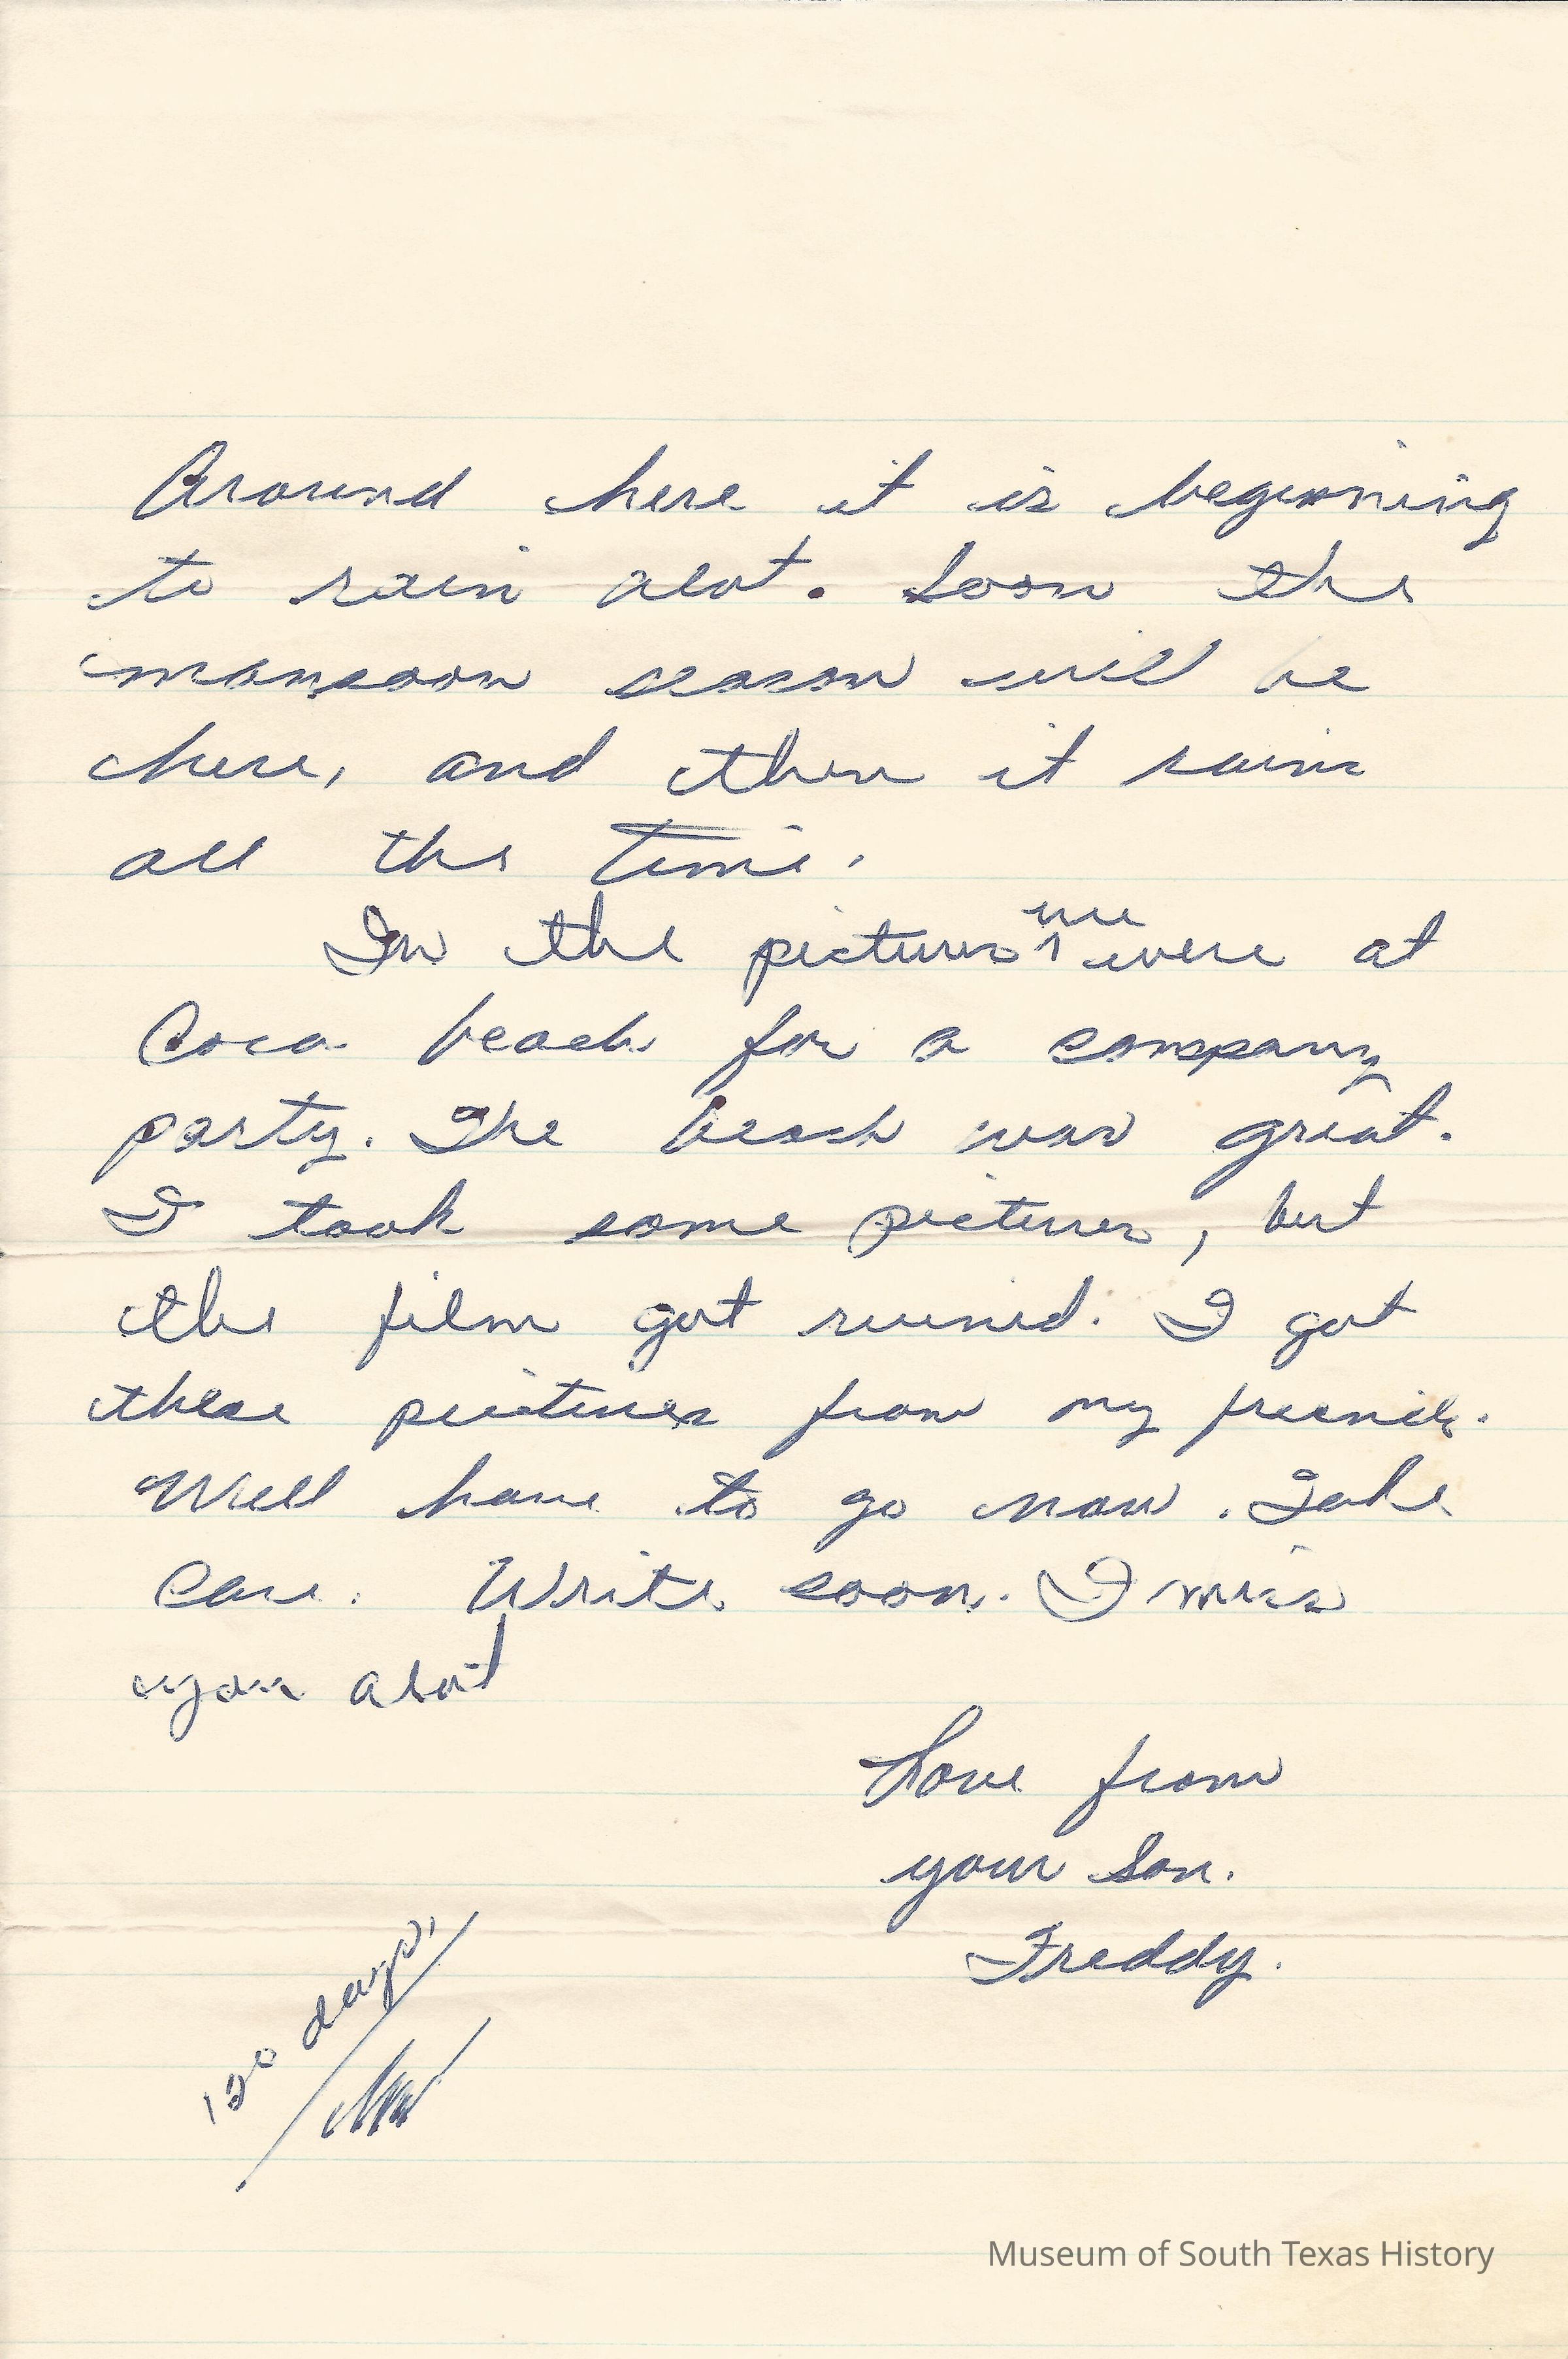 Around here it is beginning
to rain alot. Soon the
monsoon season will be
here, and then it rains
all the time.
In the pictures we were at
Coco beach for a company
party. The beach was great.
I took some pictures, but
the film got ruined. I got
these pictures from my friends.
Well have to go now. Take
Care. Write soon. I miss
you alot
Love from
your Son.
Freddy.
120 days,
Museum of South Texas History